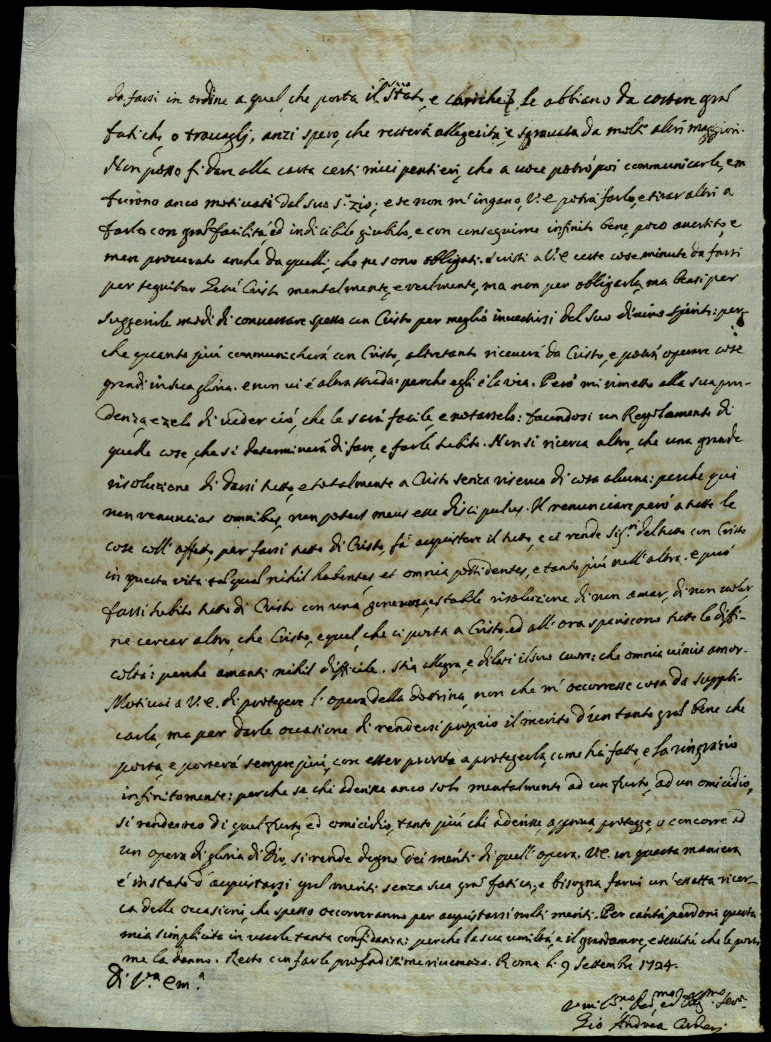 da farsi in ordine a quel, che porta il suo Stato, e cariche, le abbiano da costare gran
fatiche, o travagli, anzi spero, che resterà allegerita, e sgravata da molti altri maggiori.
Non posso fidare alla carta certi miei pensieri, che a voce potrò poi communicarle, e
furono anco motivati dal suo S.r zio; e se non m'ingano, V.E. potrà farlo, e tirar altri a
farlo con gran facilità, ed indicibile giubilo, e con conseguirne infinito bene, poco avertito, e
men procurato anche da quelli, che ne sono obligati. Scrissi a V.E. certe cose minute da farsi
per seguitar Giesù Cristo mentalmente, e realmente, ma non per obligarla, ma bensì per
suggerirle modi di conversare spesso con Cristo per meglio investirsi del suo divino spirito: per-
che quanto più communicherà con Cristo, altretanto riceverà da Cristo, e potrà operare cose
grandi in sua gloria. e non vi è altra strada: perche egli è la via. Però mi rimetto alla sua pru-
denza, e zelo di veder ciò, che le sarà facile, e notarselo: facendosi un Regolamento di
quelle cose, che si determinerà di fare, e farle subito. Non si ricerca altro, che una grande
risoluzione di darsi tutto, e totalmente a Cristo senza riserva di cosa alcuna: perche qui
non renuncias omnibus, non potest meus esse discipulus. Il renunciare però a tutte le
cose coll'affetto, per farsi tutto di Cristo, fà acquistare il tutto, e ci rende Sig.ri del tutto con Cristo
in questa vita tamquam nihil habentes, et omnia possidentes, e tanto più nell'altra. e può
farsi subito tutto di Cristo con una generosa, e stabile risoluzione di non amar, di non voler,
ne cercar altro, che Cristo, e quel, che ci porta a Cristo. ed all'ora spariscono tutte le diffi-
coltà: perche amanti nihil difficile. Stia allegra, e dilati il suo cuore: che omnia vincit amor.
Motivai a V.E. di protegere l'opera della dottrina, non che m'occorresse cosa da suppli-
carla, ma per darle occasione di rendersi proprio il merito d'un tanto gran bene che
porta, e porterà sempre più, con esser pronta a protegerla, come hà fatto, e la ringrazio
infinitamente: perche se chi aderisce anco solo mentalmente ad un furto, ad un omicidio,
si rende reo di quel furto, ed omicidio, tanto più chi aderisce, approva, protegge, o concorre ad
un opera di gloria di Dio, si rende degno dei meriti di quell'opera. V.E. in questa maniera
è in stato d'acquistarsi gran meriti senza sua gran fatica, e bisogna farvi un'esatta ricer-
ca delle occasioni, che spesso occorreranno per acquistarsi molti meriti. Per carità perdoni questa
mia simplicità in usarle tanta confidanza: perche la sua umiltà, e il grand'amore, e servitù che le porto
me la danno. Resto con farle profondissima riverenza. Roma li 9 Settembre 1724.
Di V.ra Em.a
Umil.mo Dev.mo ed Obl.mo Serv.
Gio Andrea